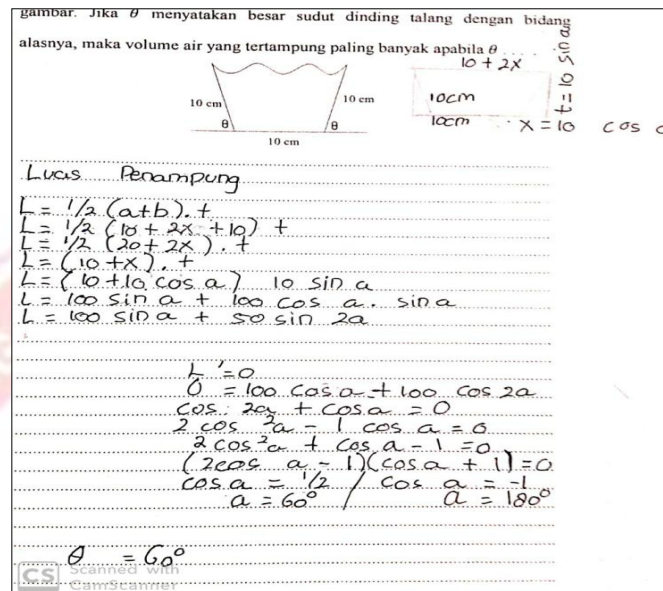 gambar. Jika θ menyatakan besar sudut dinding talang dengan bidang
alasnya, maka volume air yang tertampung paling banyak apabila θ ....
10 cm
10 cm
θ
θ
10 cm
10 + 2x
10cm
10cm
t = 10 sin a
x = 10 cos
Luas Penampung
L = 1/2 (a+b). t
L = 1/2 (10 + 2x + 10) t
L = 1/2 (20 + 2x) . t
L = (10 + x) . t
L = (10 + 10 cos a) 10 sin a
L = 100 sin a + 100 cos a. sin a
L = 100 sin a + 50 sin 2a
L' = 0
0 = 100 cos a + 100 cos 2a
cos 2a + cos a = 0
2 cos ²a - 1 cos a = 0
2 cos² a + cos a - 1 = 0
(2 cos a - 1)(cos a + 1) = 0
cos a = 1/2 / cos a = -1
a = 60° / a = 180°
θ = 60°
CS Scanned with
CamScanner